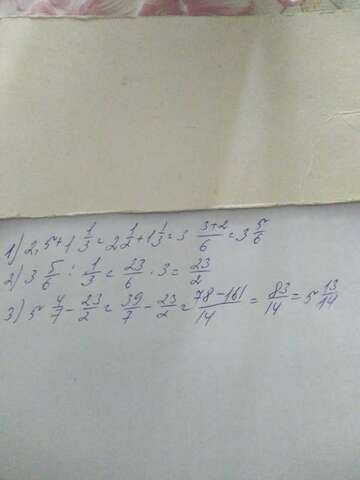 1) 2,5+1 1/3 = 2 1/2 + 1 1/3 = 3 3+2/6 = 3 5/6
2) 3 5/6 : 1/3 = 23/6 · 3 = 23/2
3) 5 4/7 - 23/2 = 39/7 - 23/2 = 78-161/14 = 83/14 = 5 13/14